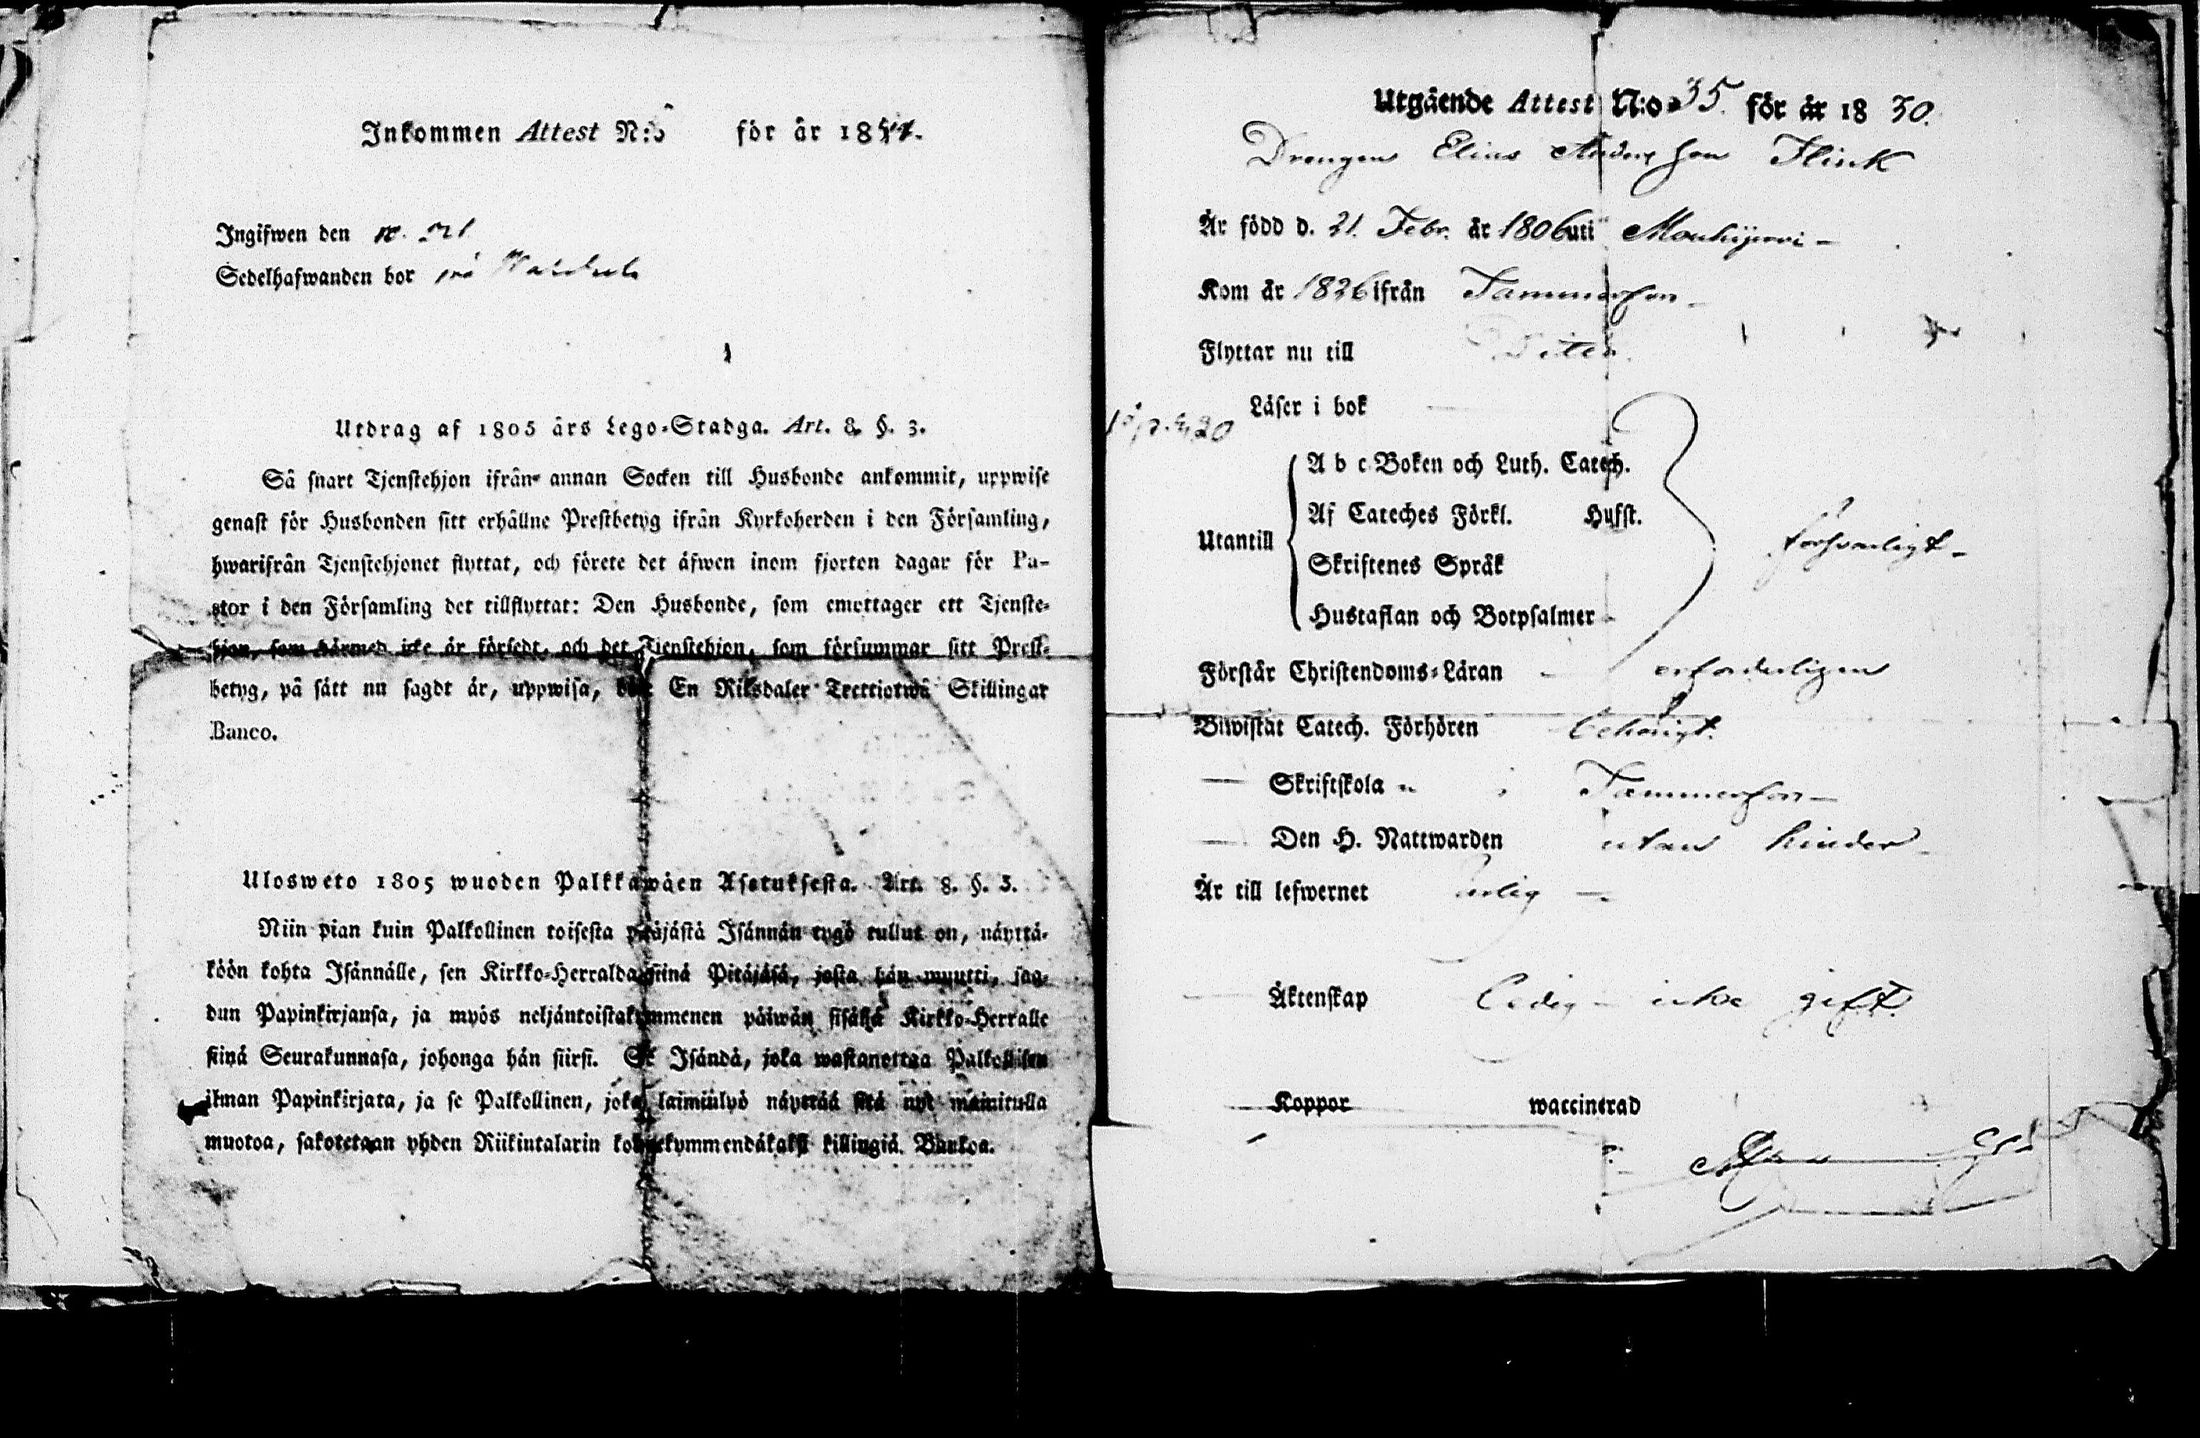 Inkommen Attest N:o för år 18
Ingifwen den
Sedelhafwanden bor på
Utdrag af 1805 års Lego-Stadga. Art. 8. §. 3.
Så snart Tjenstehjon ifrån annan Socken till Husbonde ankommit, uppwise
genast för Husbonden sitt erhållne Prestbetyg ifrån Kyrkoherden i den Församling,
hwarifrån Tjenstehjonet flyttat, och förete det äfwen inom fjorton dagar för Pa-
stor i den Församling det tillflyttat: Den Husbonde, som emottager ett Tjenste-
hjon, som härmed icke är försedt, och det Tjenstehjon, som försummar sitt Prest-
betyg, på sätt nu sagdt är, uppwisa, böte En Riksdaler Trettiotwå Skillingar
Banco.
Ulosweto 1805 wuoden Palkkawäen Asetuksesta. Art. 8. §. 3.
Niin pian kuin Palkollinen toisesta pitäjästä Isännän tygö tullut on, näyttä-
köön kohta Isännälle, sen Kirkko-Herralda siinä Pitäjäsä, josta hän muutti, saa-
dun Papinkirjansa, ja myös neljäntoistakymmenen päiwän sisällä Kirkko-Herralle
siinä Seurakunnasa, johonga hän siirsi. Se Isändä, joka wastanottaa Palkollisen
ilman Papinkirjata, ja se Palkollinen, joka laimiulyö näyttää sitä nyt mainitulla
muotoa, sakotetaan yhden Riikintalarin kolmekymmendäkaksi killingiä Bankoa.
Utgående Attest N:o 35. för år 1830.
Drengen Elias Andersson Flink
Är född d. 21. Febr. år 1806 uti Mouhijerwi -
Kom år 1826 ifrån Tammerfors -
Flyttar nu till
Läser i bok
A b c Boken och Luth. Catech.
Af Cateches Förkl. Husst.
Utantill försvarligt -
Skriftenes Språk
Hustaflan och Botpsalmer
Förstår Christendoms-Läran - erforderligen
Biwistat Catech. Förhören behörigt.
— Skriftskola i Tammerfors -
— Den H. Nattwarden utan hinder -
Är till lefwernet ärlig -
— Äktenskap Ledig - icke gift.
— Koppor waccinerad